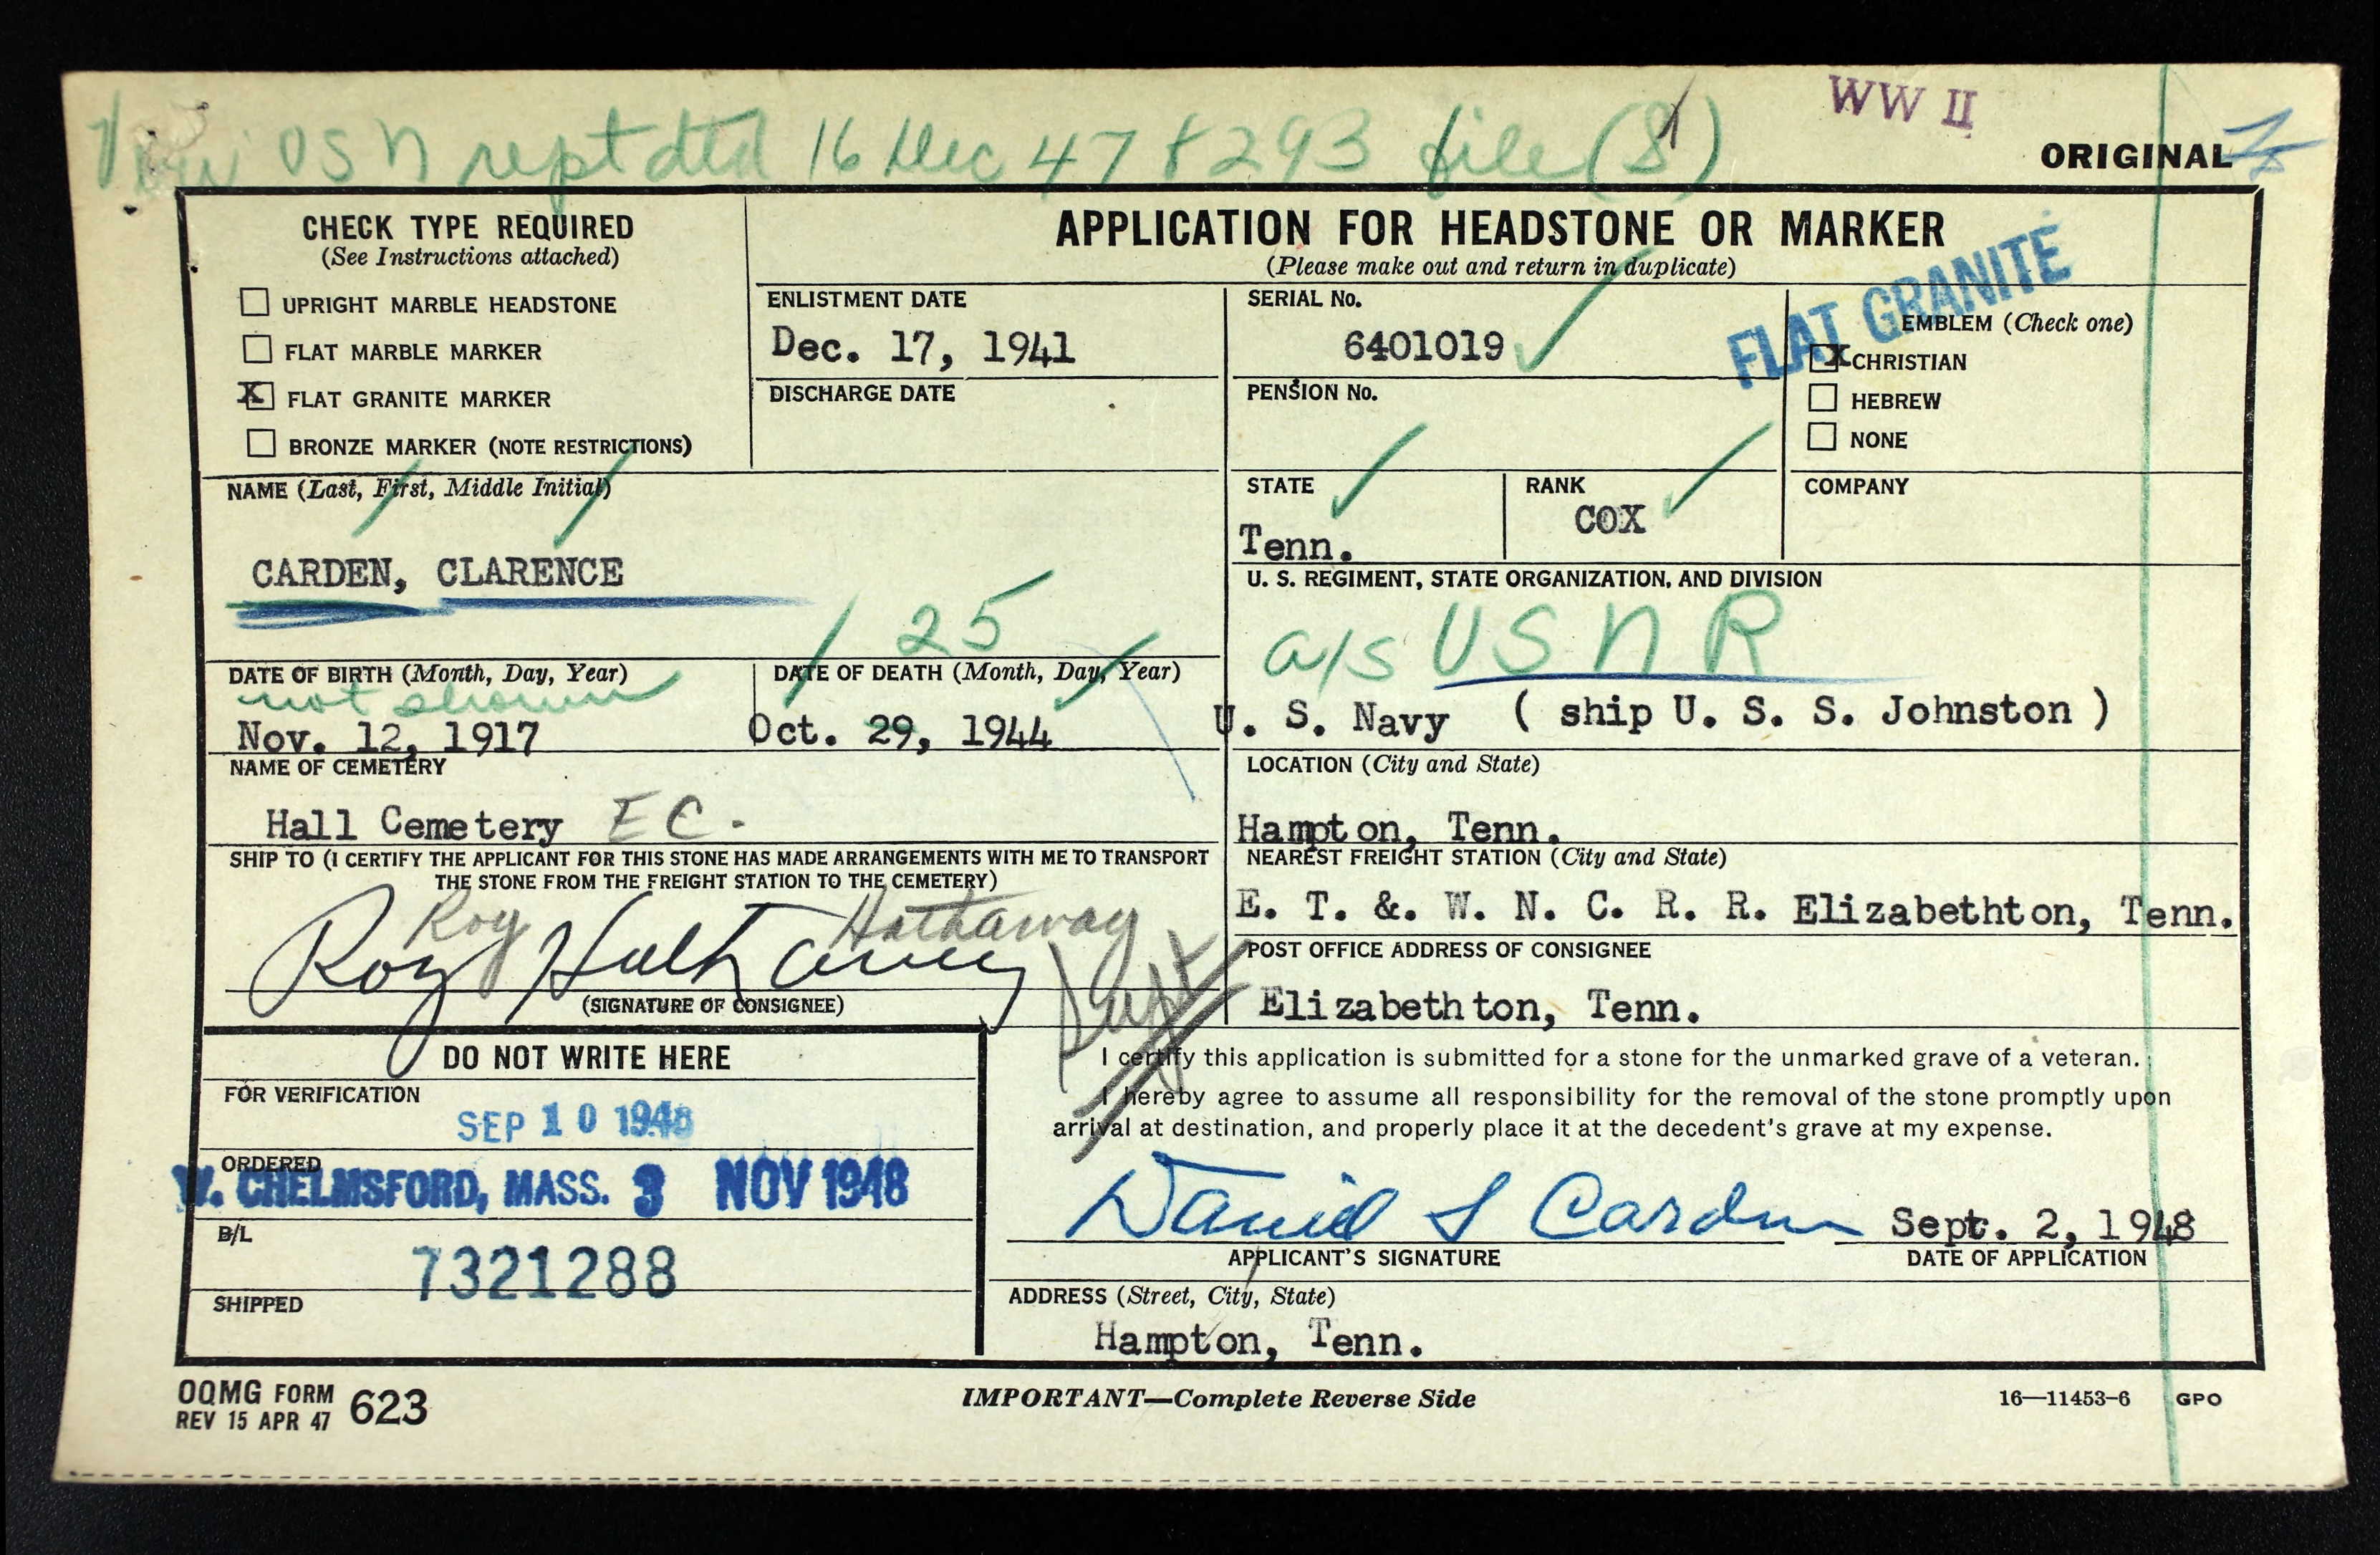 USN rept dtd 16 Dec 47 8293 file (S)
WW II
ORIGINAL
CHECK TYPE REQUIRED
(See Instructions attached)
UPRIGHT MARBLE HEADSTONE
FLAT MARBLE MARKER
X FLAT GRANITE MARKER
BRONZE MARKER (NOTE RESTRICTIONS)
APPLICATION FOR HEADSTONE OR MARKER
(Please make out and return in duplicate)
ENLISTMENT DATE
Dec. 17, 1941
DISCHARGE DATE
SERIAL No.
6401019
PENSION No.
FLAT GRANITE
EMBLEM (Check one)
X CHRISTIAN
HEBREW
NONE
NAME (Last, First, Middle Initial)
CARDEN, CLARENCE
STATE
Tenn.
RANK
COX
COMPANY
U. S. REGIMENT, STATE ORGANIZATION, AND DIVISION
a/s USNR
U. S. Navy ( ship U. S. S. Johnston )
DATE OF BIRTH (Month, Day, Year)
not shown
Nov. 12, 1917
25
DATE OF DEATH (Month, Day, Year)
Oct. 29, 1944
NAME OF CEMETERY
Hall Cemetery EC.
LOCATION (City and State)
Hampton, Tenn.
SHIP TO (I CERTIFY THE APPLICANT FOR THIS STONE HAS MADE ARRANGEMENTS WITH ME TO TRANSPORT
THE STONE FROM THE FREIGHT STATION TO THE CEMETERY)
Roy Hathaway
Roy Hathaway
(SIGNATURE OF CONSIGNEE)
NEAREST FREIGHT STATION (City and State)
E. T. &. W. N. C. R. R. Elizabethton, Tenn.
POST OFFICE ADDRESS OF CONSIGNEE
Elizabethton, Tenn.
DO NOT WRITE HERE
FOR VERIFICATION
SEP 10 1948
ORDERED
W. CHELMSFORD, MASS. 3 NOV 1948
B/L
7321288
SHIPPED
I certify this application is submitted for a stone for the unmarked grave of a veteran.
I hereby agree to assume all responsibility for the removal of the stone promptly upon
arrival at destination, and properly place it at the decedent's grave at my expense.
Daniel S Carden Sept. 2, 1948
APPLICANT'S SIGNATURE
DATE OF APPLICATION
ADDRESS (Street, City, State)
Hampton, Tenn.
OQMG FORM 623
REV 15 APR 47
IMPORTANT—Complete Reverse Side
16—11453-6 GPO